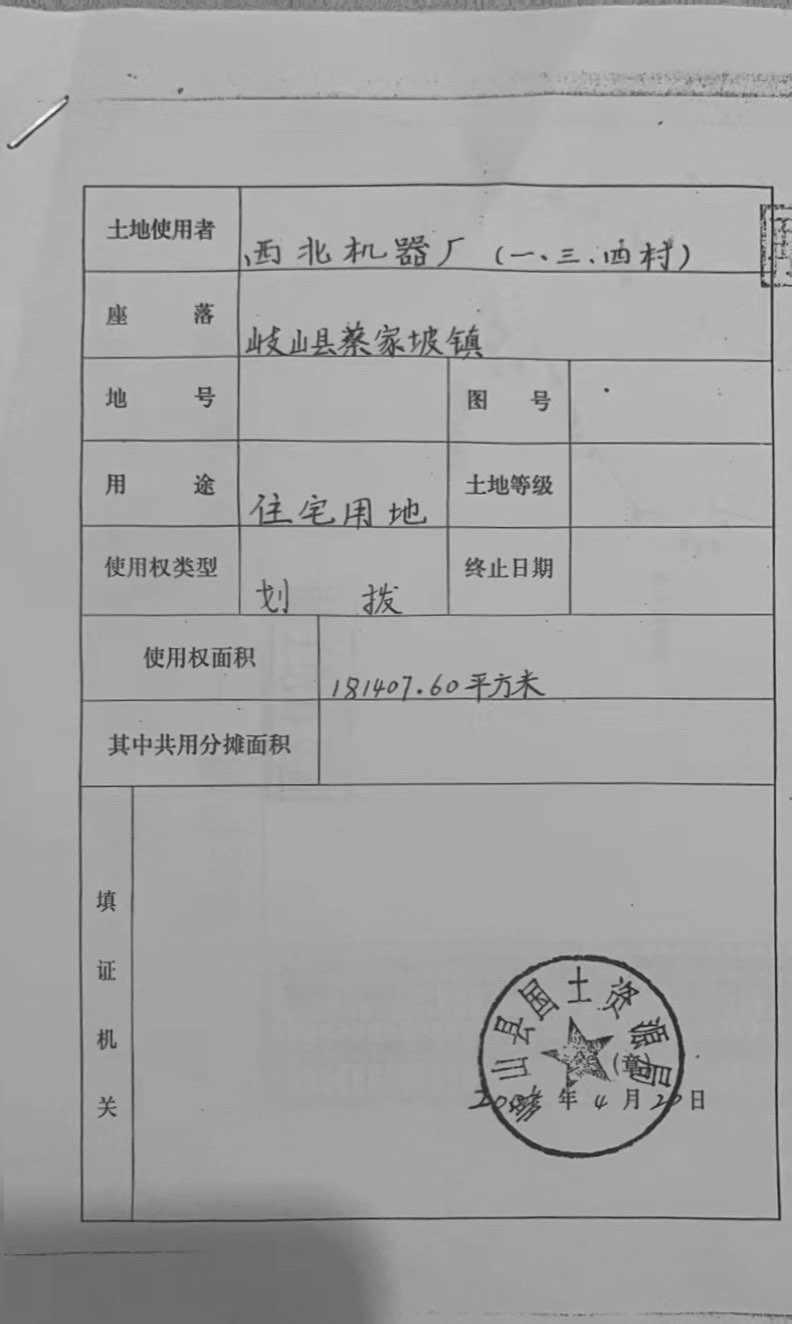 土地使用者 西北机器厂(一、三、西村)
座落 岐山县蔡家坡镇
地号 图号
用途 住宅用地 土地等级
使用权类型 划拨 终止日期
使用权面积 181407.60平方米
其中共用分摊面积
填证机关
岐山县国土资源局
(章)
年4月20日